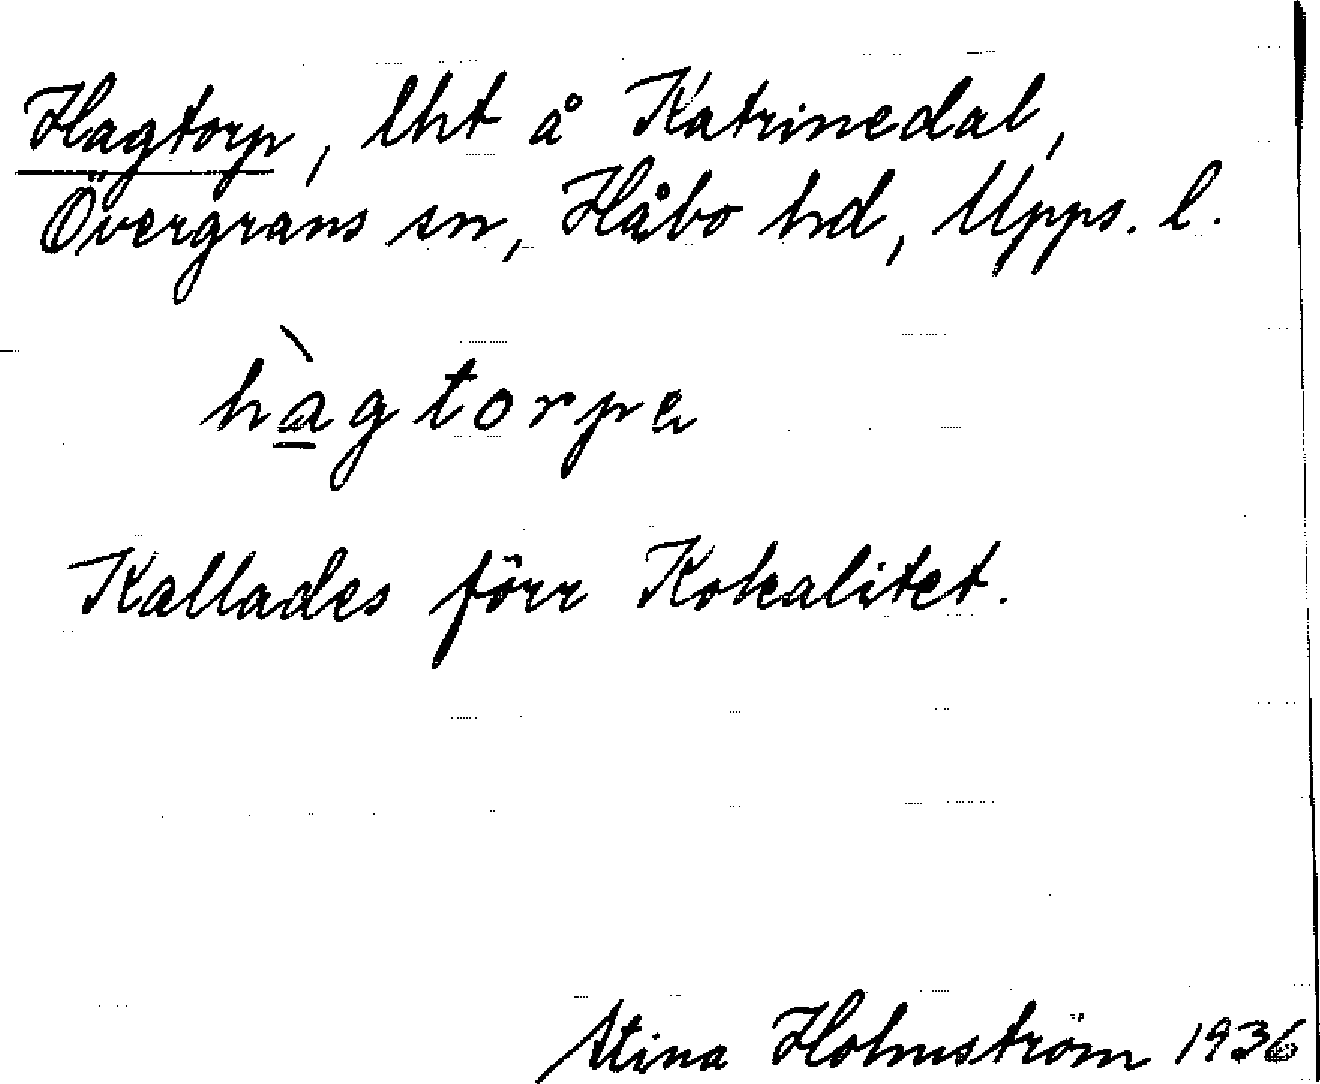 Hagtorp, lht å Katrinedal,
Övergrans sn, Håbo hd, Upps. l.
hàgtorpe
Kallades förr Kokalitet.
Stina Holmström 1936